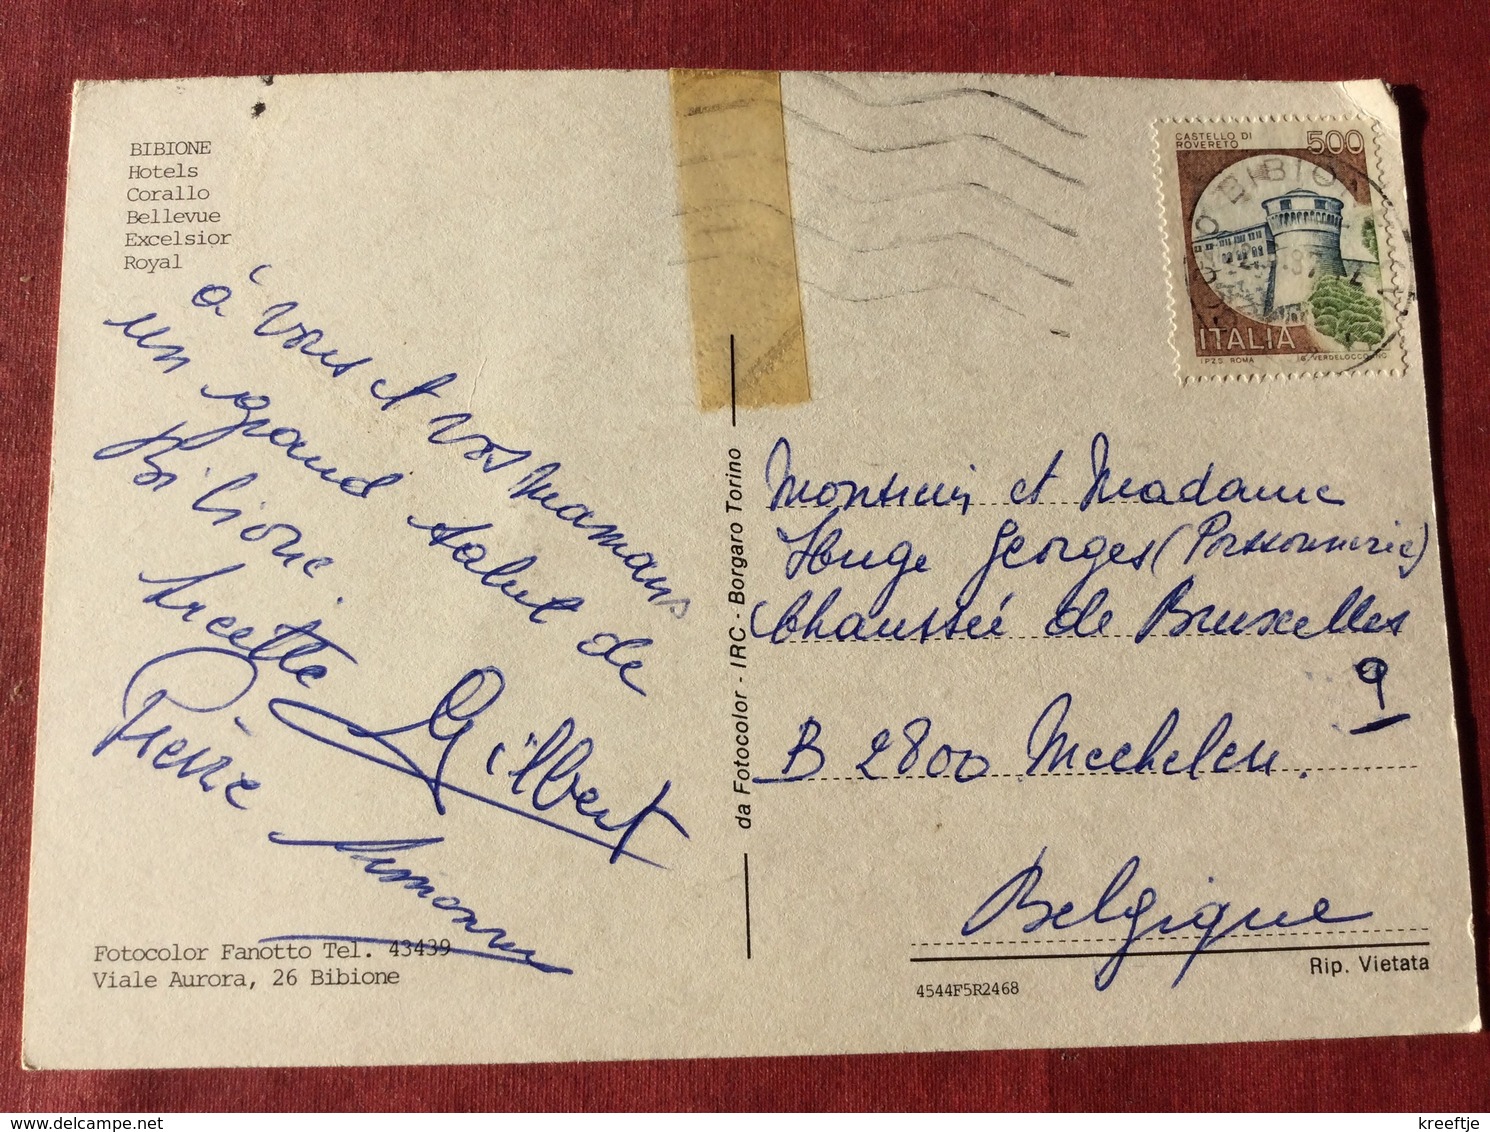 BIBIONE
Hotels
Corallo
Bellevue
Excelsior
Royal
à vous et vos mamans
un grand salut de
Bibione
Gilbert
Pierre Simonne
Fotocolor Fanotto Tel. 43439
Viale Aurora, 26 Bibione
da Fotocolor - IRC - Borgaro Torino
CASTELLO DI
ROVERETO
500
ITALIA
I.P.Z.S. ROMA
BIBIONE
87
Monsieur et Madame
Huge Georges (Poissonnerie)
Chaussée de Bruxelles
9
B 2800 Mechelen.
Belgique
Rip. Vietata
4544F5R2468
kreeftje